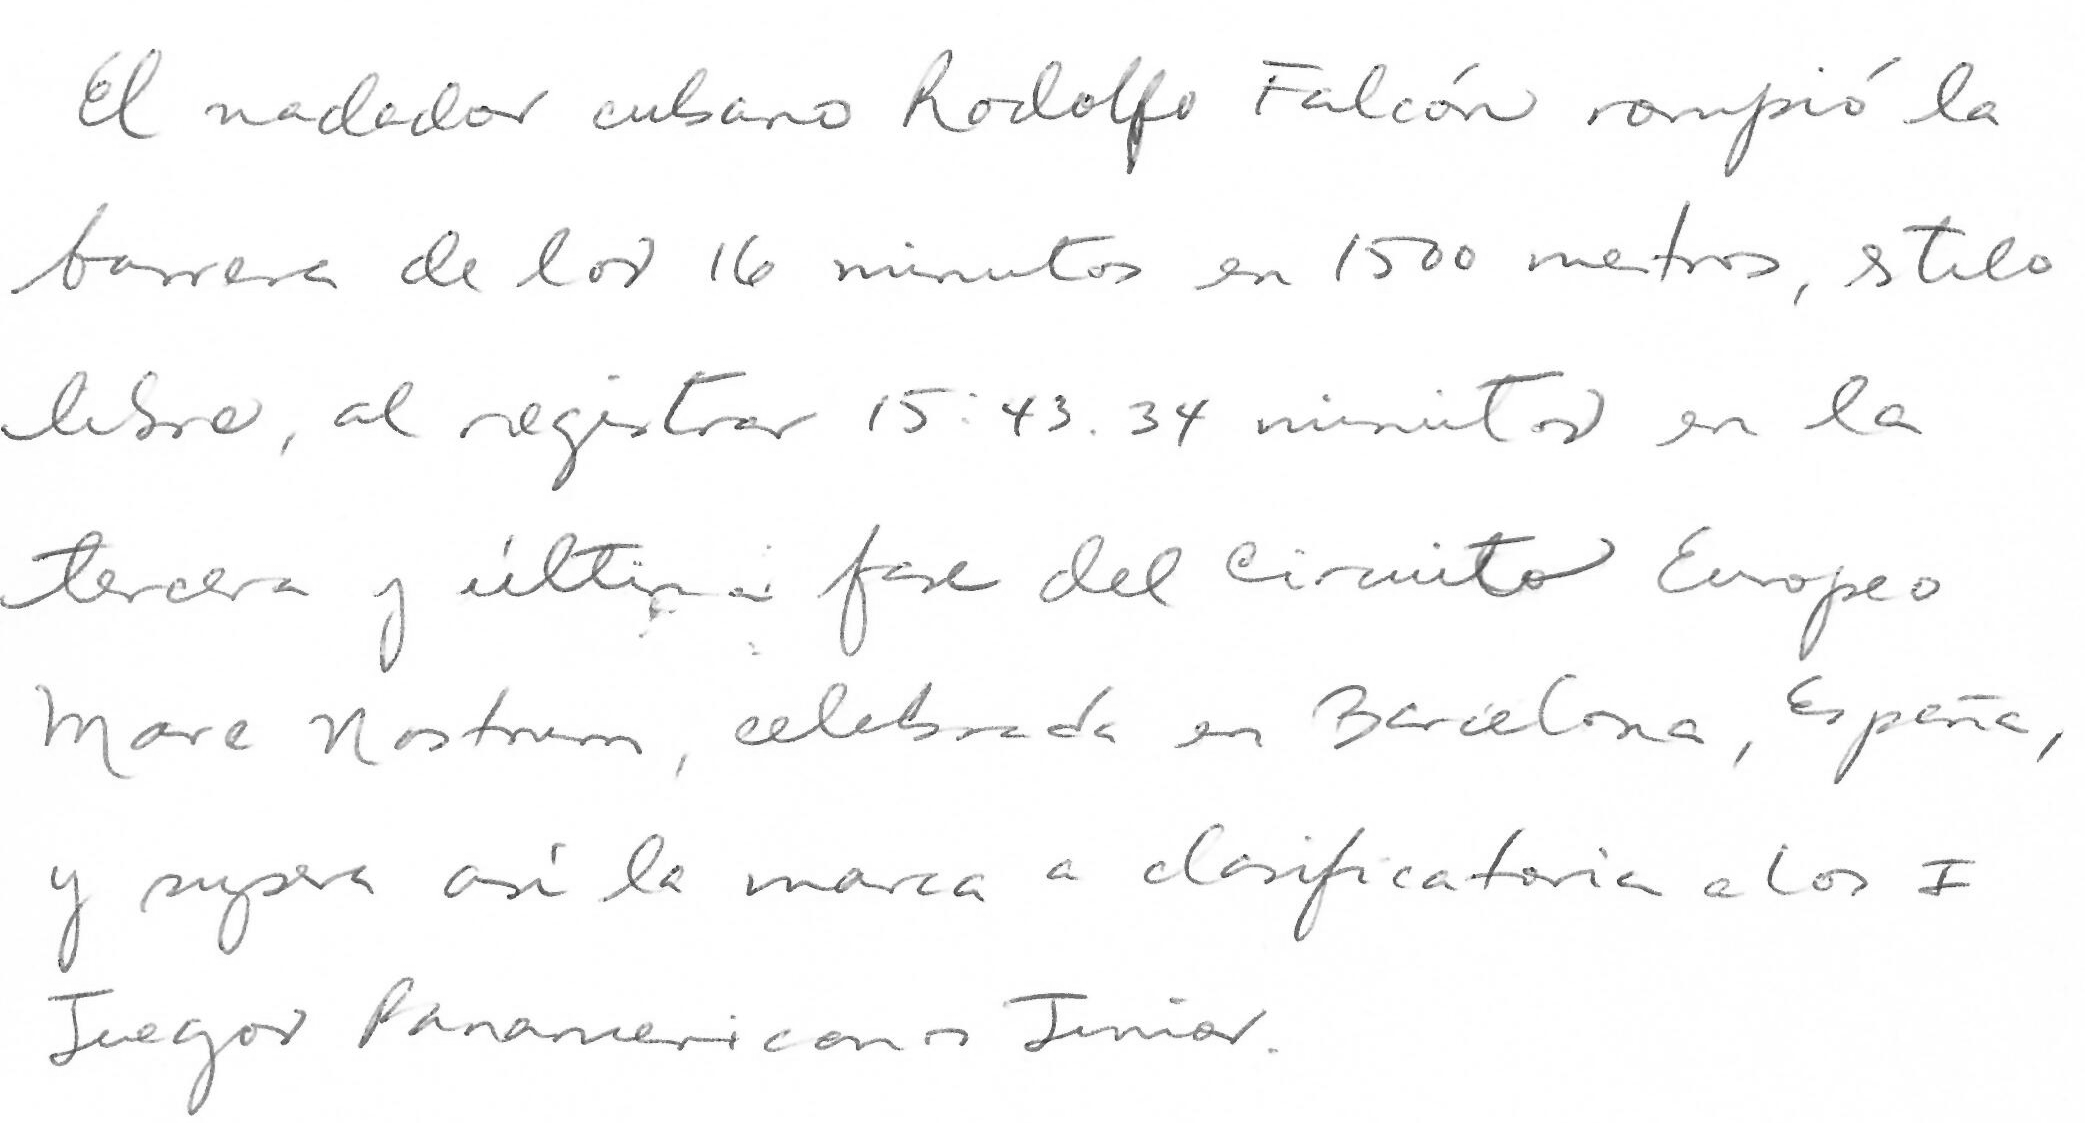 El nadador cubano Rodolfo Falcón rompió la
barrera de los 16 minutos en 1500 metros, estilo
libre, al registrar 15:43.34 minutos en la
tercera y última fase del Circuito Europeo
Mare Nostrum, celebrada en Barcelona, España,
y supera así la marca a clasificatoria a los I
Juegos Panamericanos Junior.